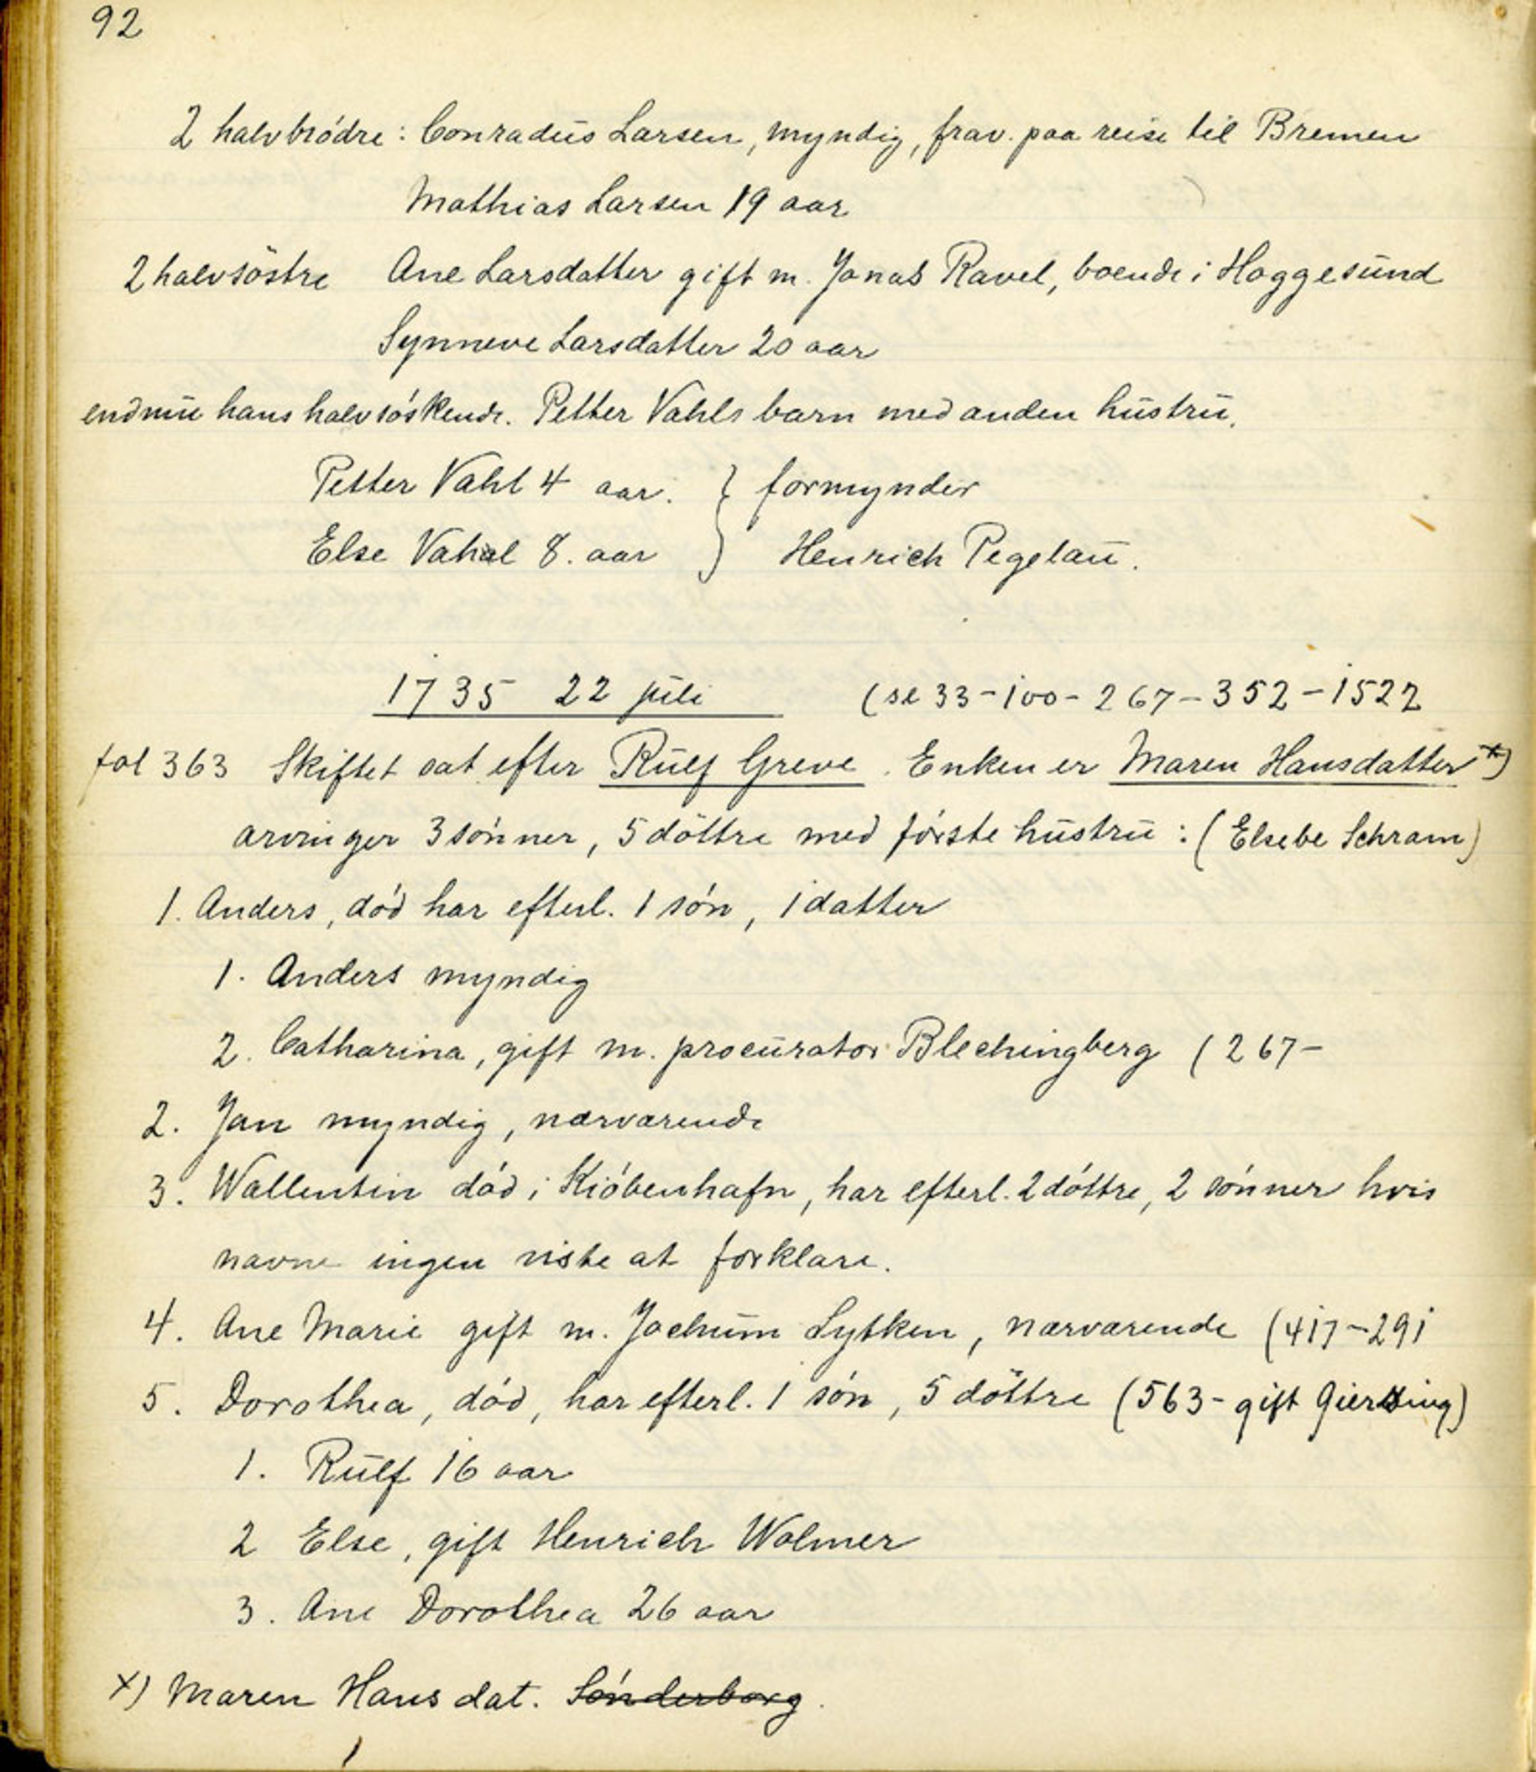 92
2 halvbródre: Conradus Larsen, myndig, frav. paa reise til Bremen
Mathias Larsen 19 aar
2 halvsöstre Ane Larsdatter gift m. Jonas Ravel, boende i Hoggesund
Synneve Larsdatter 20 aar
endnu hans halvsóskende. Petter Vahls barn med anden hustru.
Petter Vahl 4 aar. } formynder
Else Vahal 8. aar } Henrich Pegelau.
1735 22 juli (se 33-100-267-352-1522
fol 363 Skiftet sat efter Rulf Greve. Enken er Maren Hansdatter x)
arvinger 3 sónner, 5 döttre med fórste hustru: (Elsebe Schram)
1. Anders, dód har efterl. 1 són, 1 datter
1. Anders myndig
2. Catharina, gift m. procurator Blechingberg (267-
2. Jan myndig, nærværende
3. Wallentin dód i Kióbenhafn, har efterl. 2 dóttre, 2 sónner hvis
navne ingen viste at forklare.
4. Ane Marie gift m. Jochum Lytken, nærværende (417-291
5. Dorothea, dód, har efterl. 1 són, 5 döttre (563- gift Gierding)
1. Rulf 16 aar
2 Else, gift Henrich Wolmer
3. Ane Dorothea 26 aar
x) Maren Hansdat. Sónderborg.